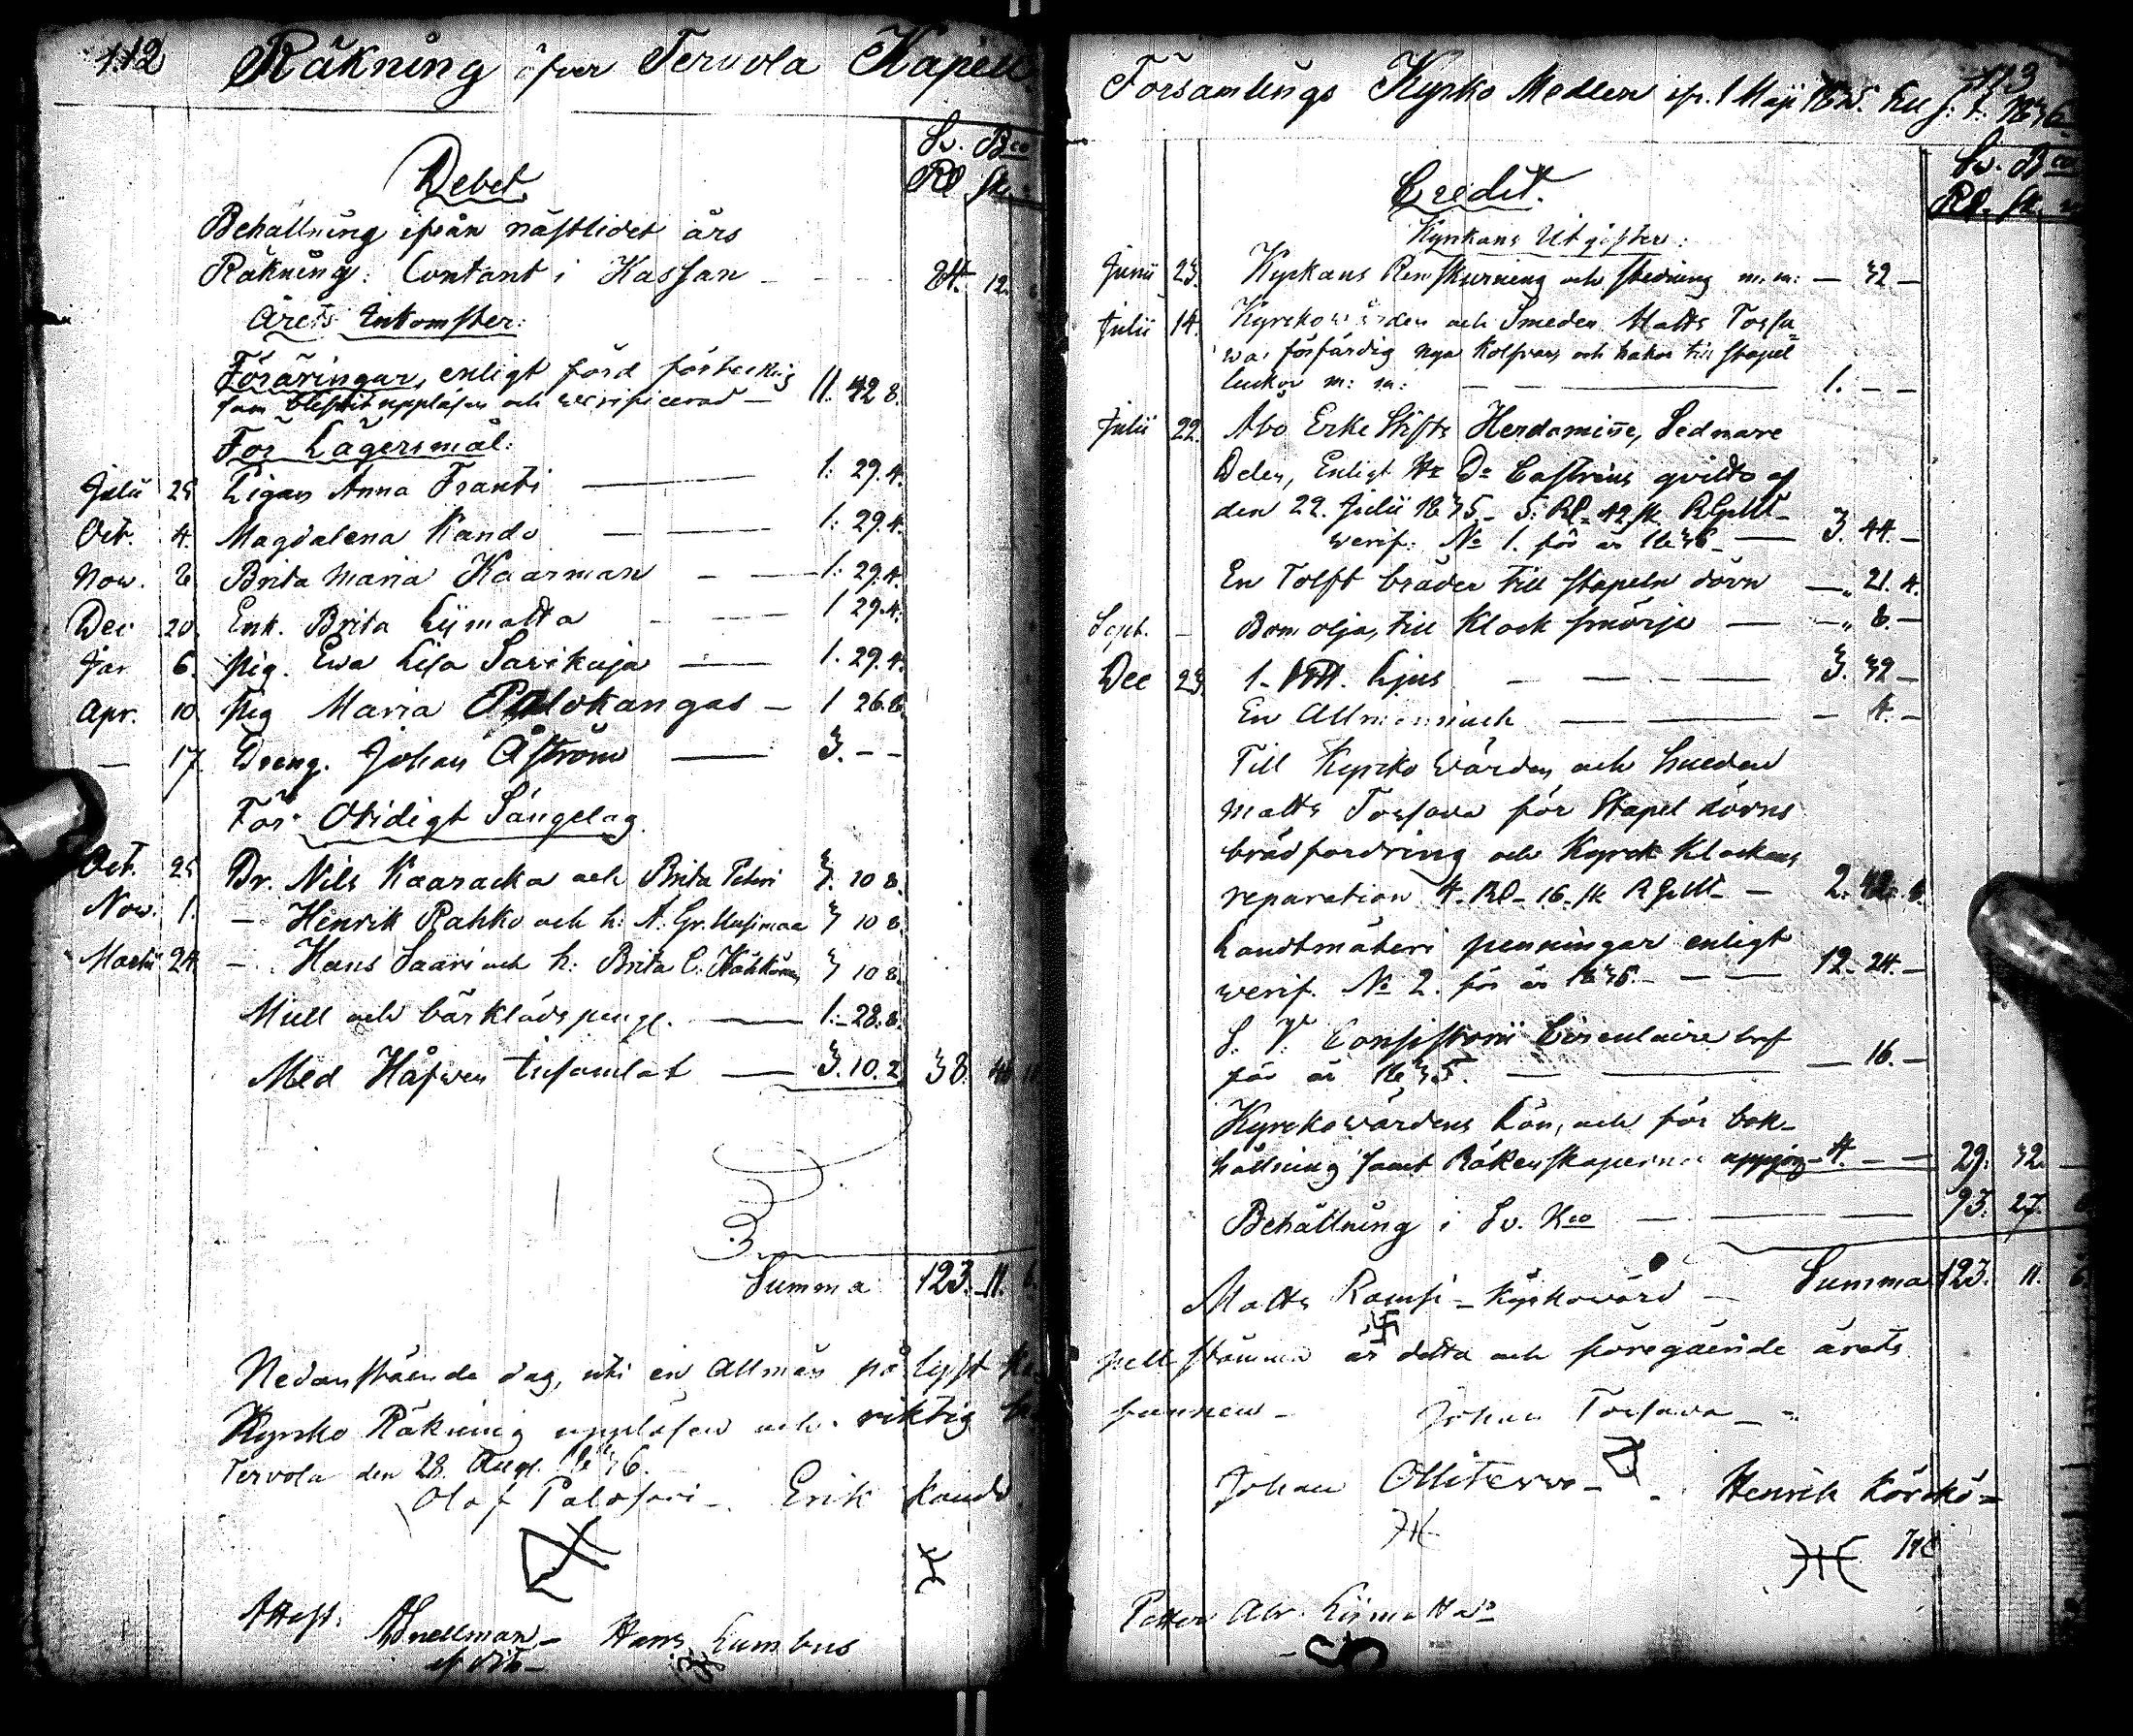 112
Räkning öfver Tervola Kapell
Sv. Bco
Debet.
Rd. sk.
Behållning ifrån nästlidet års
Räkning: Contant i Kassan - 84. 12.
Årets Inkomster:
Föräringar, enligt förd förtecknig
som blifvit uppläsen och verificerad - 11. 42 8.
För Lägersmål:
Julii 25 Pigan Anna Franti 1. 29. 4.
Oct. 4. Magdalena Kando 1. 29. 4.
Nov. 8 Brita Maria Kaarman 1. 29. 4.
Dec 20. Enk. Brita Liimatta 1 29. 4.
Jan 6. Pig. Ewa Lisa Sarikaja 1. 29. 4.
Apr. 10. Pig Maria Palokangas - 1 26. 8.
— 17. Dreng. Johan Åström 3. - -
För Otidigt Sängelag
Oct. 25 Dr. Nils Kaaracka och Brita Peteri 3. 10 8.
Nov. 1. - Henrik Rahko och h: A: Gr. Uusimaa 3 10 8.
Martii 24 - Hans Saari och h: Brita C. 3 10 8.
Mull och bårklädspengr. 1. 28. 8.
Med Håfven insamlat 3. 10. 2 38.
Summa 123. 11. 6.
Nedanstående dag, uti en Allmän pålyst Ka
Kyrko Räkning uppläsen och riktig be
Tervola den 28. Aug. 1836.
Olof Palosari - Erik Kando
Attest. ASnellman - Hans Lumbus
113
Församlings Kyrko Medlen ifr. 1 Maji 1835. till s. d. 1836.
Sv. Bco
Credit.
Rd. sk.
Kyrkans Utgifter:
Junii 23. Kyrkans Renskurning och städning m. m: - 32 -
Julii 14. Kyrckowärden och Smeden Matts Torfa
wa, förfärdig nya Kolfvar och hakar till stapel
luckor m: m: 1. - -
Julii 22. Åbo Erke Stifts Herdaminne, Sednare
Delen, Enligt Hr Dr Castréns qvitto af
den 22. Julii 1835 - 5. Rd. 42 sk. RGMt -
werif: No 1. för år 1836 - 3. 44. -
En Tolft bräder till stapeln dörn -„ 21. 4.
Sept. - Bomolja, till Klock smörje -„ 8. -
Dec 23 1. Ljus 3. 32 -
En Allmannach - 4. -
Till Kyrcko Wärden och Smeden
Matts Torfava för Stapel dörns
brädfordring och Kyrck Klockans
reparation 4. Rd - 16. sk RGMt - 2. 42. 8.
Landtmäteri penningar enligt
werif. No 2. för år 1836. - 12. 24. -
S. V. Consistorii Circulaire bref
för år 1835. - 16. -
Kyrckowärdens Lön, och för bok-
hållning samt Räkenskapernas uppgör - 4. - - 29. 32. -
Behållning i Sv. Bco 93. 27. 6
Matts Ramsi - Kyrkovärd - Summa 123. 11. 6
pell stämma är detta och föregående årets
funnen -
Johan Torfava -
Johan Olliterwo - Henrik Körckö -
Petter Abr. Liimatta